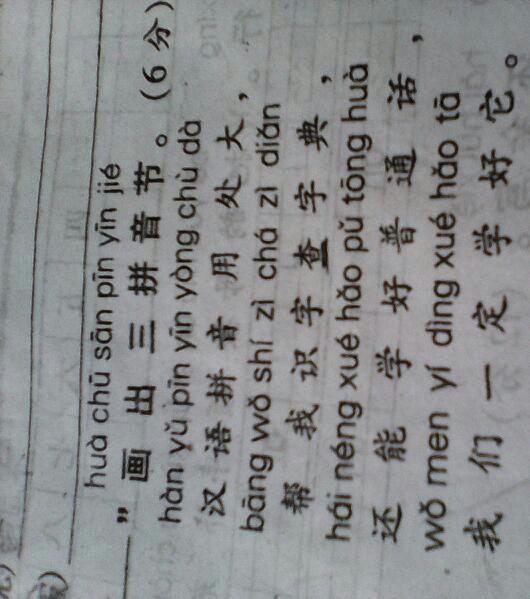 huà chū sān pīn yīn jié
”画出三拼音节。(6分)
hàn yǔ pīn yīn yòng chù dà
汉语拼音用处大,
bāng wǒ shí zì chá zì diǎn
帮我识字查字典,
hái néng xué hǎo pǔ tōng huà
还能学好普通话,
wǒ men yí dìng xué hǎo tā
我们一定学好它。